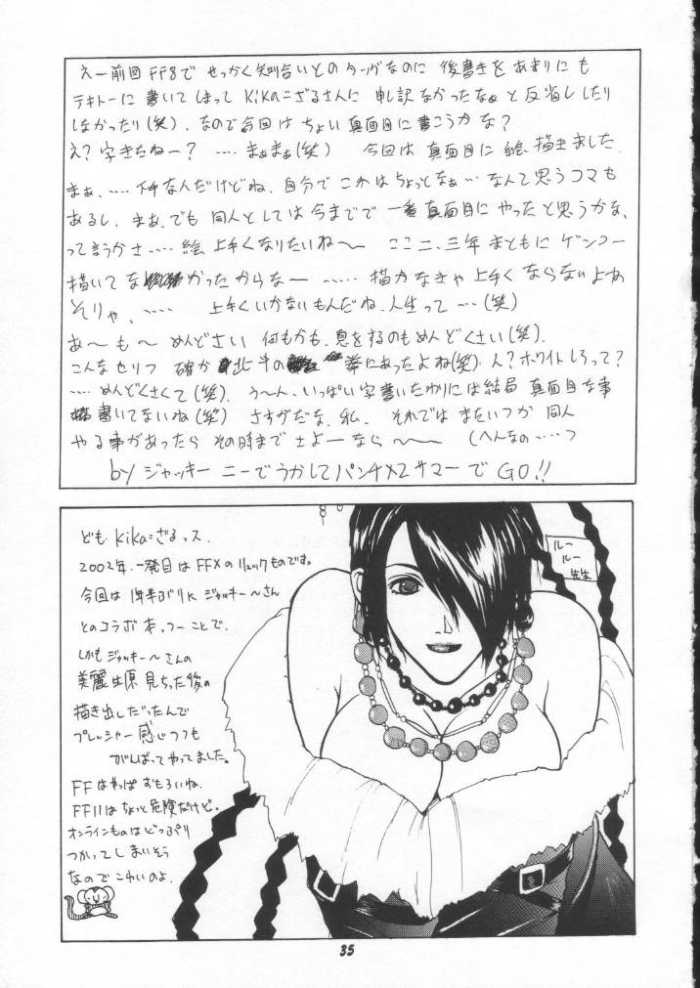 えー前回FF8で せっかく知り合いとの なのに 後書きをあまりにも
テキトーに書いてしまって Kikaこざるさんに 申し訳なかったなぁと反省したり
しなかったり(笑)、なので今回はちょい真面目に書こうかな?
え?字きたねー? ‥‥まぁまぁ(笑) 今回は真面目に絵描きました
まぁ、‥‥下手なんだけどね、自分でこれはちょっとなぁ…なんて思うコマも
あるし、まぁ、でも 同人としては今までで一番真面目にやったと思うかな、
って言うかさ‥‥絵 上手くなりたいね〜 ここ二、三年まともにゲンコー
描いてなかったからなー ‥‥‥描かなきゃ上手くならないよね
そりゃ、‥‥‥ 上手くいかないもんだね、人生って…(笑)
あ〜も〜めんどさい 何もかも、息をするのもめんどくさい(笑)、
こんなセリフ 確か 北斗の拳にあったよね(笑) ん?ホワイトしろって?
‥‥めんどくさくて(笑)、う〜ん、いっぱい字書いたわりには結局真面目な事
書いてないね(笑) さすがだな、私、 それでは またいつか 同人
やる事があったら その時まで さよーなら〜〜 (へんなの‥‥っ
by ジャッキー ニーでうかしてパンチ×2サマーで GO!!
ども Kikaこざるっス.
2002年、一発目はFFXのリュックものです。
今回は 1年半ぶりに ジャッキー〜さん
とのコラボ本。つーことで、
しかもジャッキー〜さんの
美麗生原見ちった後の
描き出しだったんで
プレッシャー感じつつも
がんばってやってました。
FFはやっぱ おもろいね.
FF11はちょっと危険だけど。
オンラインものはどっぷり
つかってしまいそう
なのでこわいのよ.
ルー
ルー
先生
35